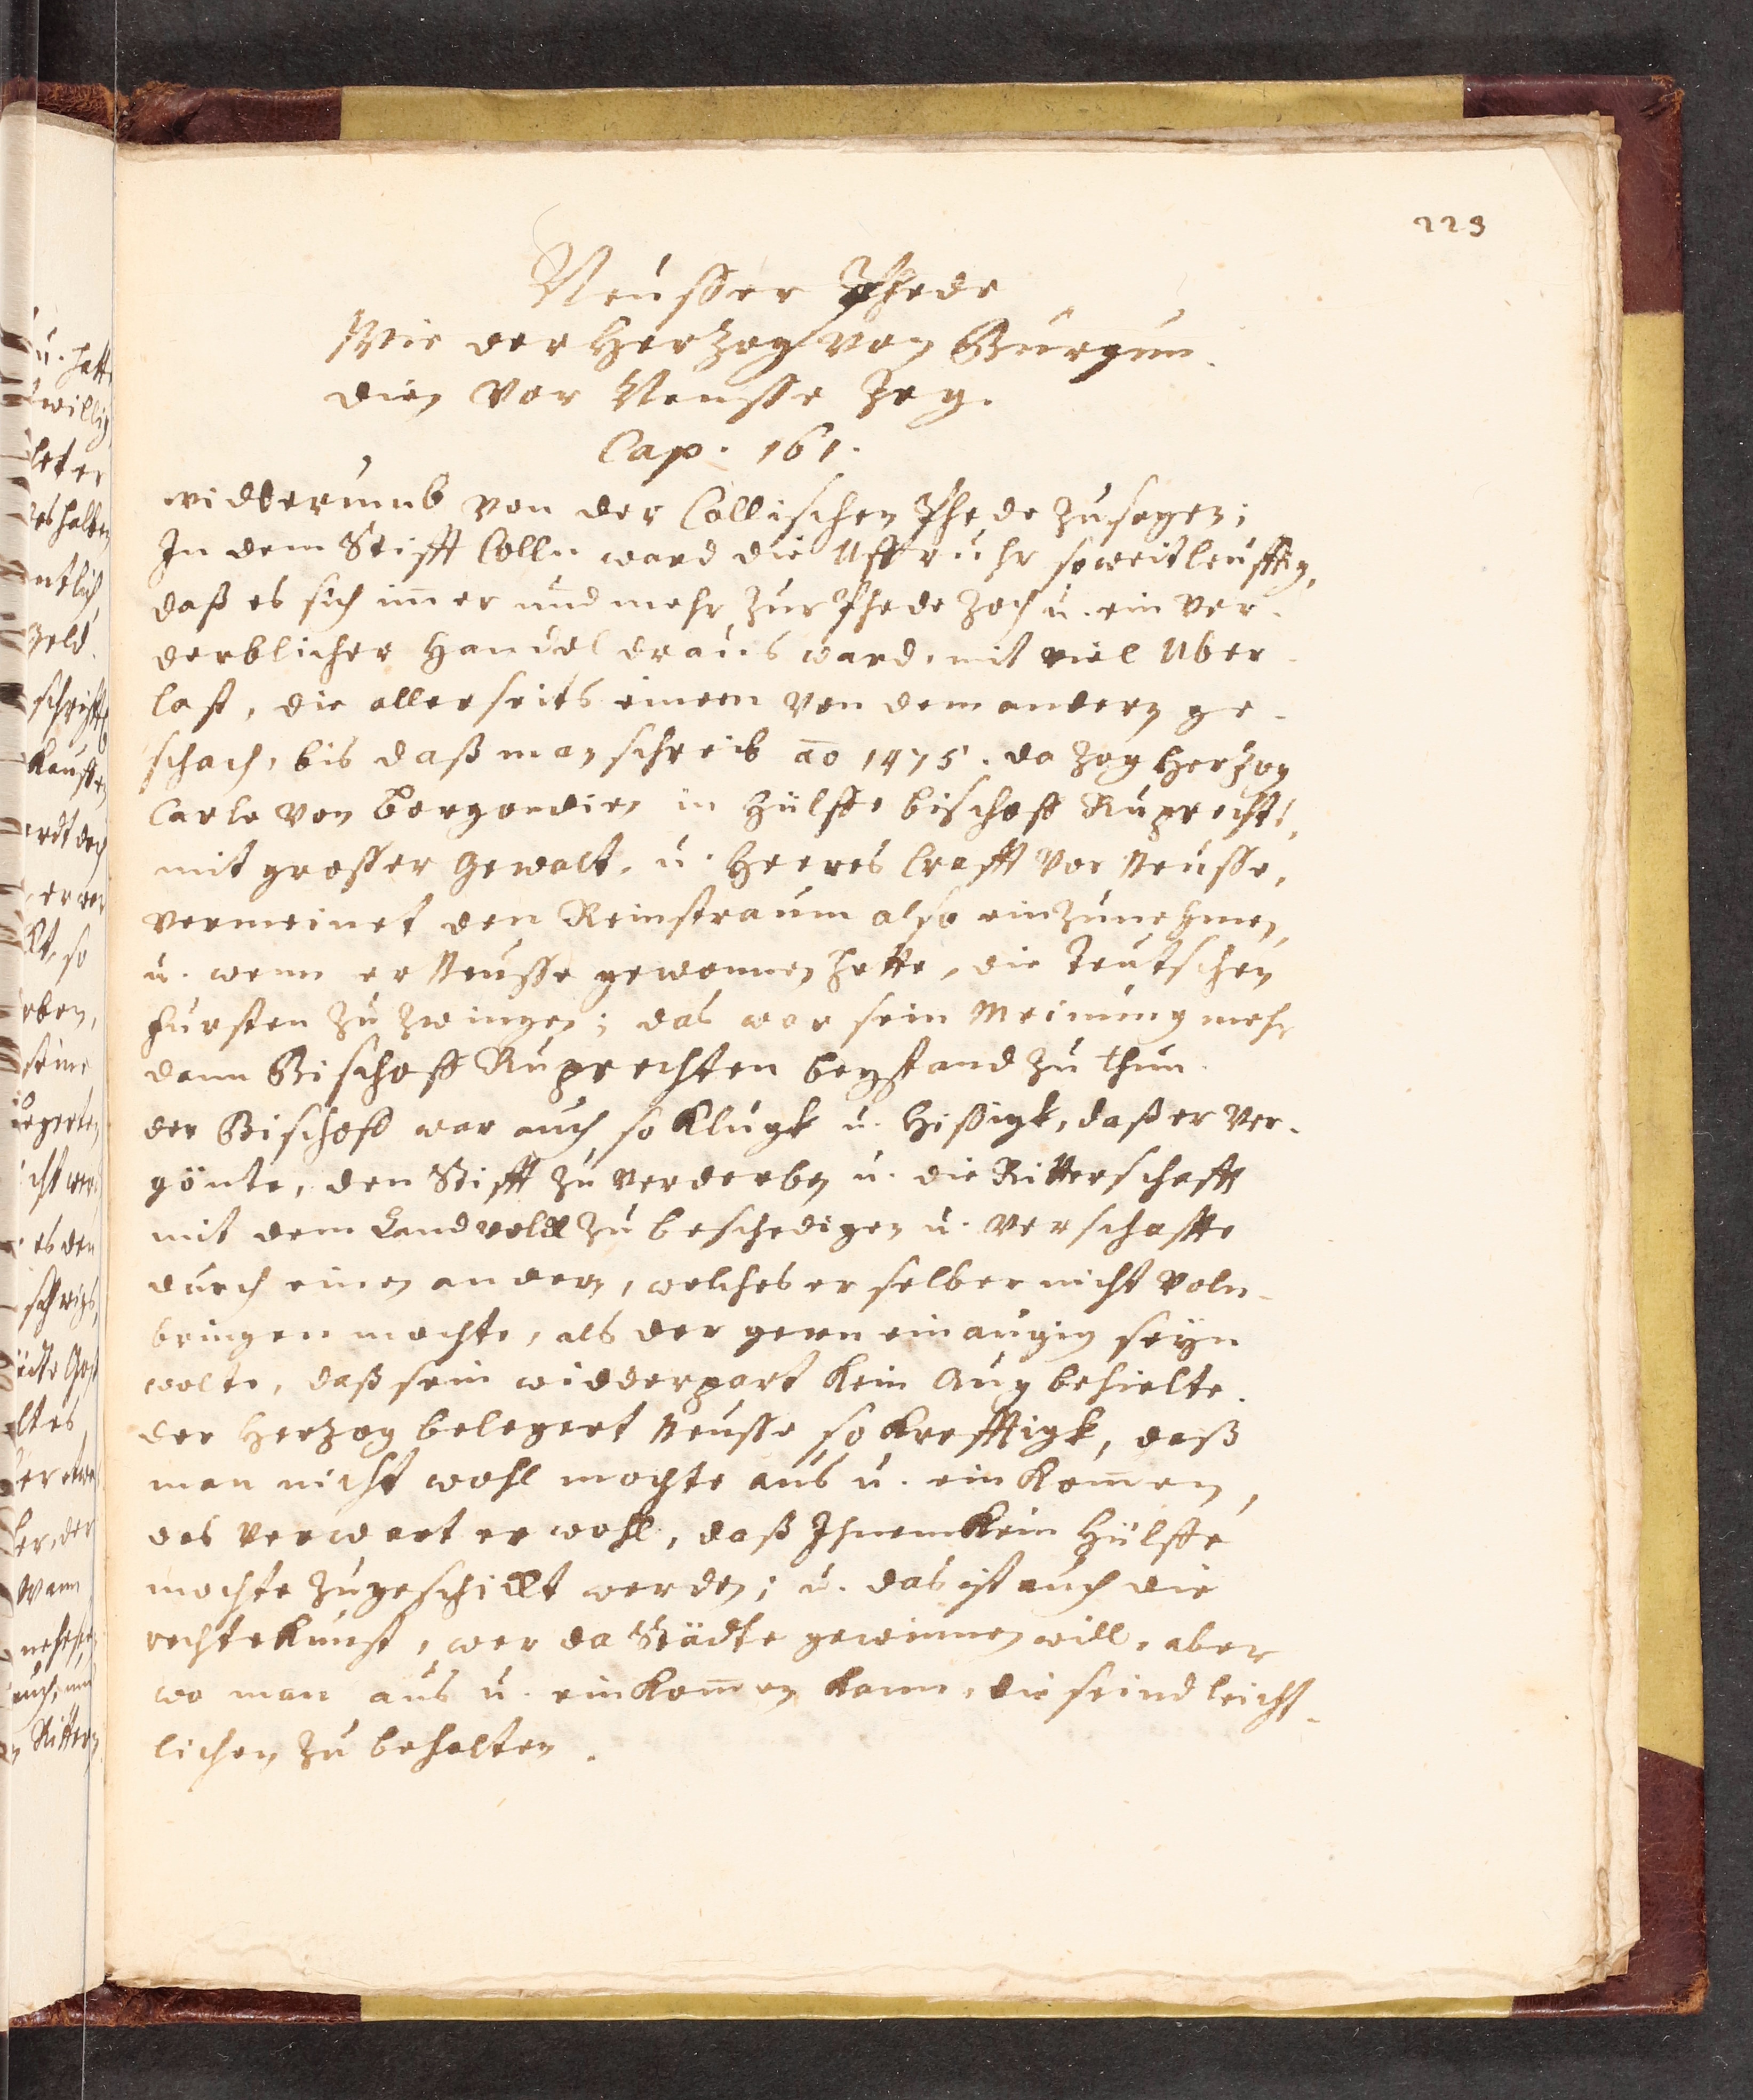 223
Neusser Phede
Wie der Herzog von Burgun-
dien vor Neusse zog.
Cap. 161.
widderumb von der Collischen Phede zusagen;
In dem Stifft Colln ward die Uffruhr soweitleufftig,
daß es sich im̄er und mehr zur Phede zoch u. ein ver-
derblicher Handel draus ward, mit viel Uber-
last, die allerseits einem von dem andern ge-
schach, bis daß man schreib ao 1475. da zog Herzog
Carle von Borgondien in Hülffe bischoff Ruprechts,
mit grosser Gewalt, u. Heeres Crafft vor Neusse,
vermeinet den Reinstraum also einzunehmen,
u. wenn er Neusse gewonnen hette, die Teutschen
Fursten zu zwingen; das war sein Meinung mehr
dann Bischoff Ruprechten beystand zu thun.
der Bischoff war auch so klugk u. hissigk, daß er ver-
gönte, den Stifft zu verderben u. die Ritterschafft
mit dem Landvolck zu beschedigen u. verschaffte
durch einen andern, welches er selber nicht voln-
bringen mochte, als der gern einaugig seyn
wolte, daß sein widderpart kein Aug behielte.
der Herzog belegert Neusse so krefftigk, daß
man nicht wohl mochte aus u. ein kom̄en,
das verwart er wohl, daß Ihnem kein Hülffe
mochte zugeschickt werden; u. das ist auch die
rechte Kunst, wer da Städte gewinnen will, aber
wo man aus u. einkom̄en kann, die seind leicht-
lichen zu behalten.